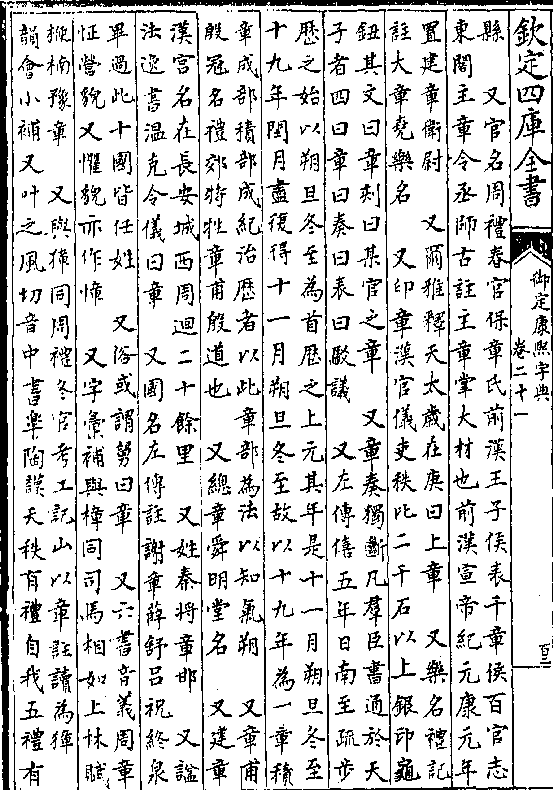 欽定四庫全書
御定康熙字典
卷二十一
縣　又官名周禮春官保章氏前漢王子侯表千章侯百官志
東閣主章令丞師古註主章掌大材也前漢宣帝紀元康元年
置建章衛尉　又爾雅釋天太歲在庚曰上章　又樂名禮記
註大章堯樂名　又印章漢官儀吏秩比二千石以上銀印龜
鈕其文曰章刻曰某官之章　又章奏獨斷凡羣臣書通於天
子者四曰章曰奏曰表曰駁議　又左傳僖五年日南至疏步
歷之始以朔旦冬至為首歷之上元其年是十一月朔旦冬至
十九年閏月盡復得十一月朔旦冬至故以十九年為一章積
章成部積部成紀治歷者以此章部為法以知氣朔　又章甫
殷冠名禮郊特牲章甫殷道也　又總章舜明堂名　又建章
漢宮名在長安城西周迴二十餘里　又姓秦將章邯　又諡
法逸書溫克令儀曰章　又國名左傳註謝章薛舒呂祝終泉
畢過此十國皆任姓　又俗或謂舅曰章　又六書音義周章
怔營貌又懼貌亦作慞　又字彙補與樟同司馬相如上林賦
楩楠豫章　又與獐同周禮冬官考工記山以章註讀為獐
韻會小補又叶之風切音中書臯陶謨天秩有禮自我五禮有